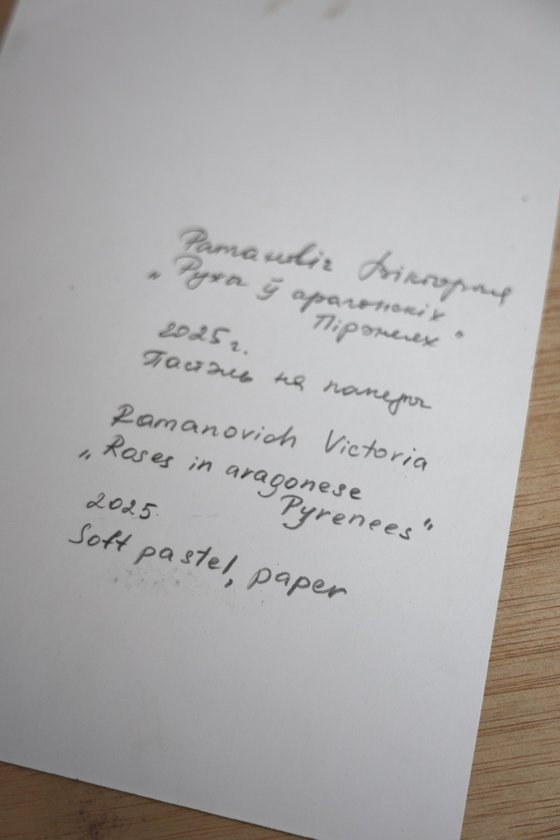 Рамановіч Вікторыя
„Ружы ў арагонскіх
Пірэнеях"
2025г.
Пастэль на паперы
Ramanovich Victoria
„Roses in aragonese
Pyrenees"
2025
Soft pastel, paper